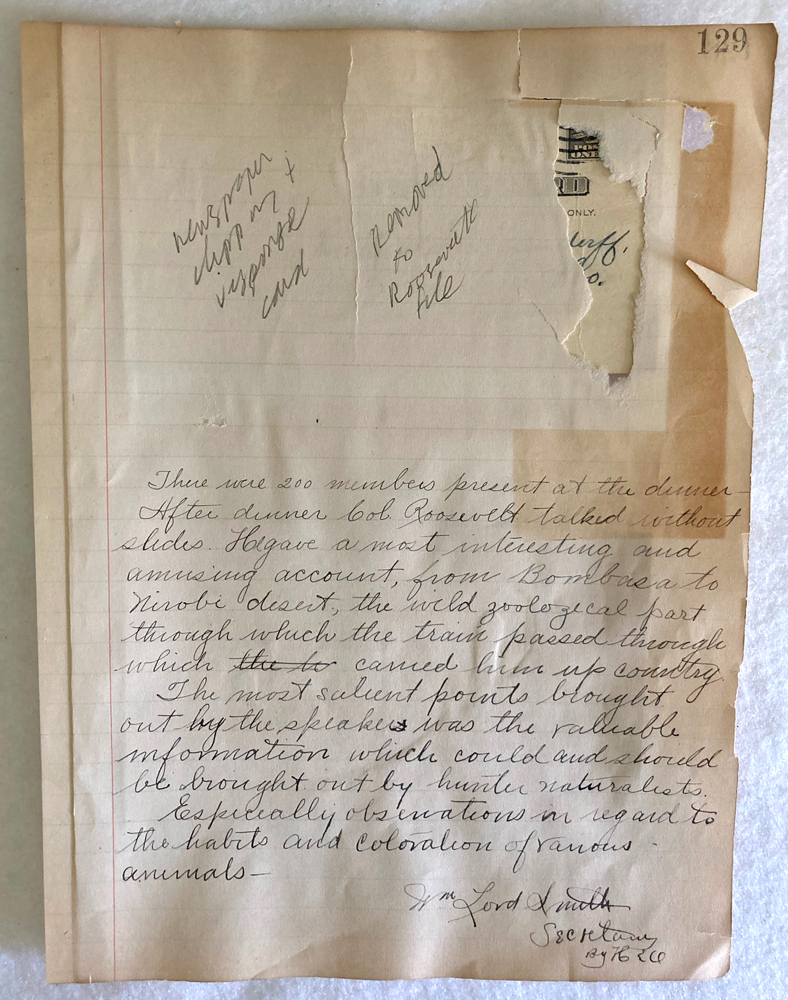 129
newspaper
clipping +
response
card
Removed
to
Roosevelt
file
POS
ONE
RD
ONLY.
o.
There were 200 members present at the dinner—
After dinner Col. Roosevelt talked without
slides. He gave a most interesting and
amusing account, from Bombasa to
Nirobi desert, the wild zoological part
through which the train passed through
which carried him up country.
The most salient points brought
out by the speakers was the valuable
information which could and should
be brought out by hunter naturalists.
Especially observations in regard to
the habits and coloration of various
animals—
Wm Lord Smith
Secretary
By